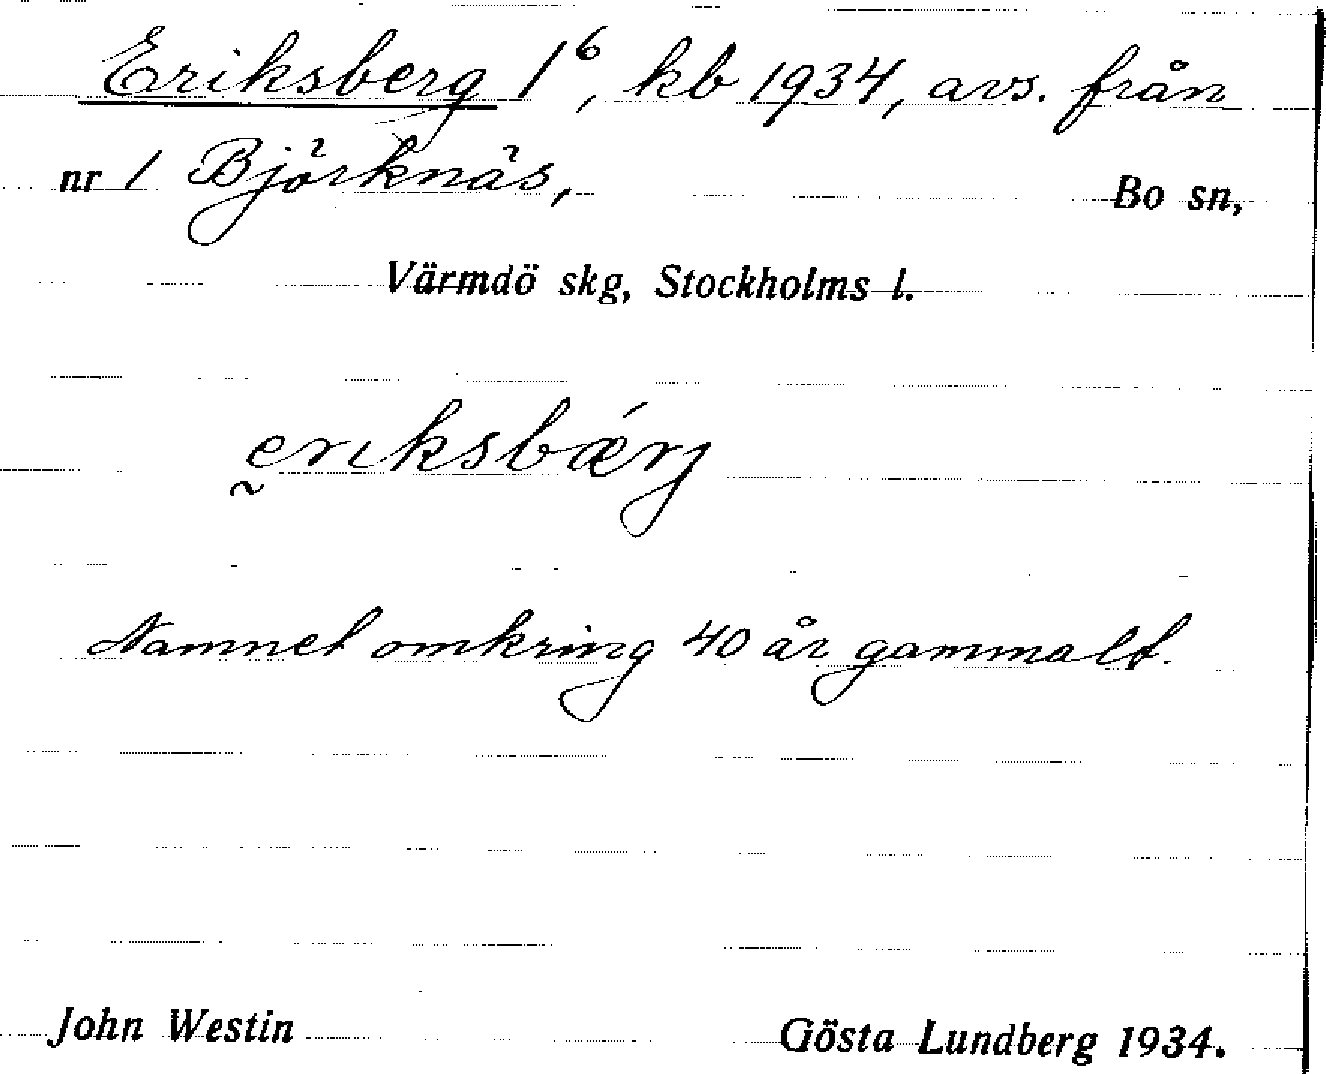 Eriksberg 1⁶, kb 1934, avs. från
nr 1 Björknäs, Bo sn,
Värmdö skg, Stockholms l.
ḛriksbǽrj
Namnet omkring 40 år gammalt.
John Westin Gösta Lundberg 1934.